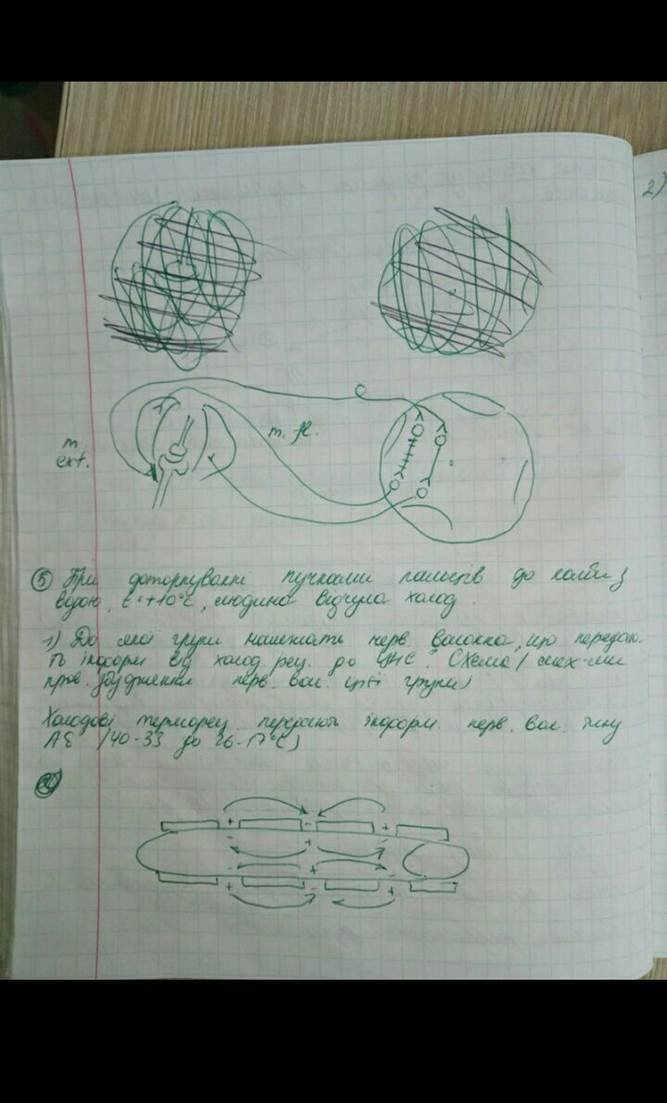 2)
m. fl.
m.
ext.
⑤ При доторкуванні пучками пальців до колби з
водою, t=+10°C, людина відчула холод.
1) До якої групи належать нерв. волокна, що передаю-
ть інформ від холод. рец. до ЦНС? Схема/мех-ми
пров. збудження нерв. вол. цієї групи)
Холодові терморец передають інформ. нерв. вол. типу
Аδ (40-33 до 26-17°C)
+ - +
- + -
- + -
+ - +